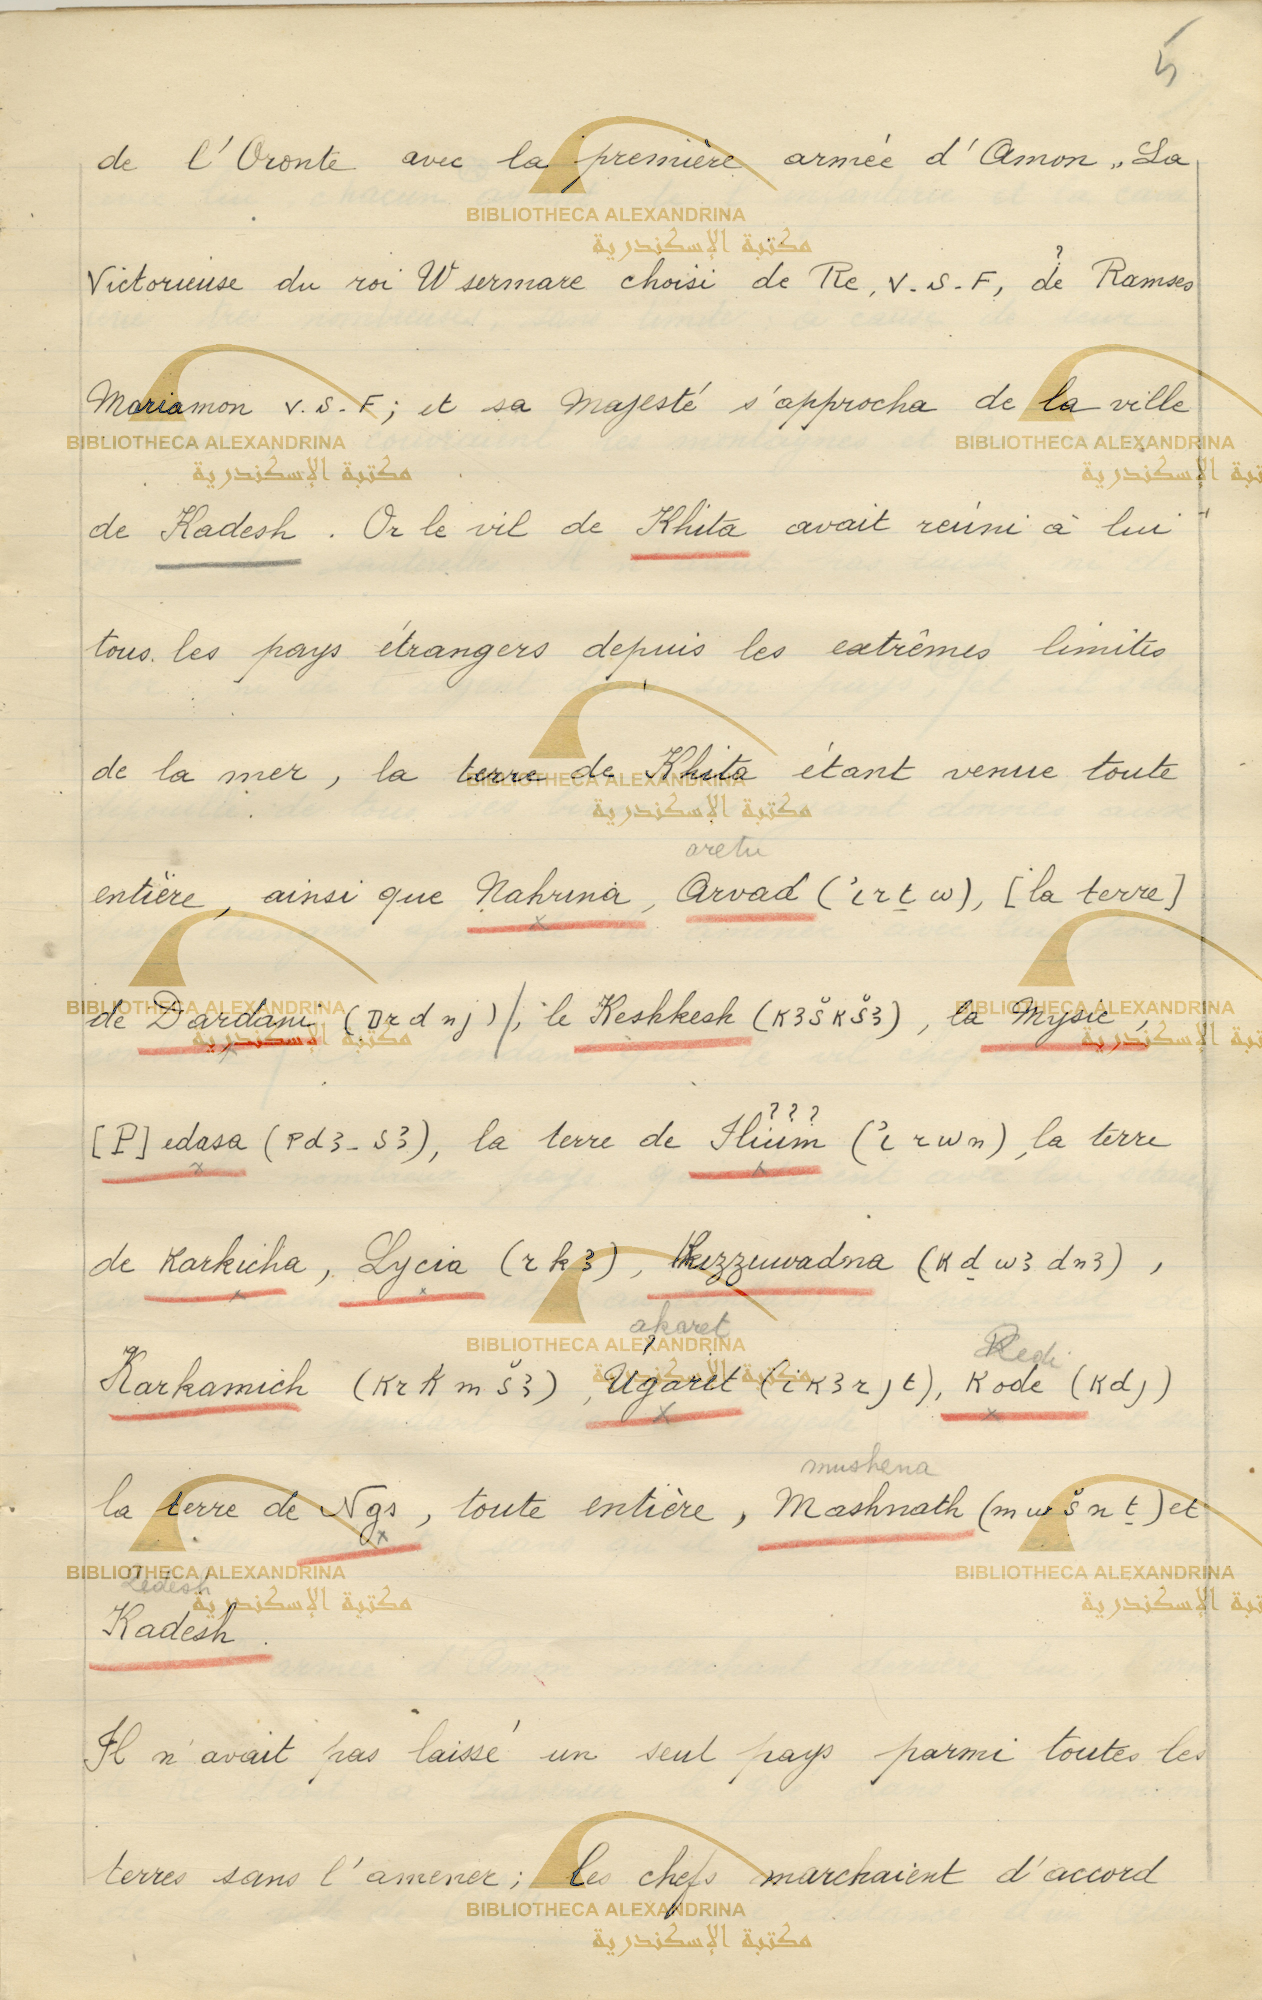 5
de l'Oronte avec la première armée d'Amon „La
Victorieuse du roi Wsermare choisi de Re, V.S.F, de Ramses
?
Mariamon V.S.F; et sa Majesté s'approcha de la ville
de Kadesh. Or le vil de Khita avait réuni à lui
tous les pays étrangers depuis les extrêmes limites
de la mer, la terre de Khita étant venue toute
aretu
entière, ainsi que Nahrina, Arvad (ʾırṯw), [la terre]
de Dardani (Drdnj), le Keshkesh (K3šKš3), la Mysie,
? ? ?
[P]edasa (Pd3-S3), la terre de Ilium (ʾırwn), la terre
de Karkicha, Lycia (rk3), Kizzuwadna (Kḏw3dn3),
akaret
Kedi
Karkamich (KrKmš3), Ugarit (iK3rjt), Kode (Kdj)
mushena
la terre de Ngs, toute entière, Mashnath (mwšnṯ) et
Kadesh
Il n'avait pas laissé un seul pays parmi toutes les
terres sans l'amener; les chefs marchaient d'accord
BIBLIOTHECA ALEXANDRINA
مكتبة الإسكندرية